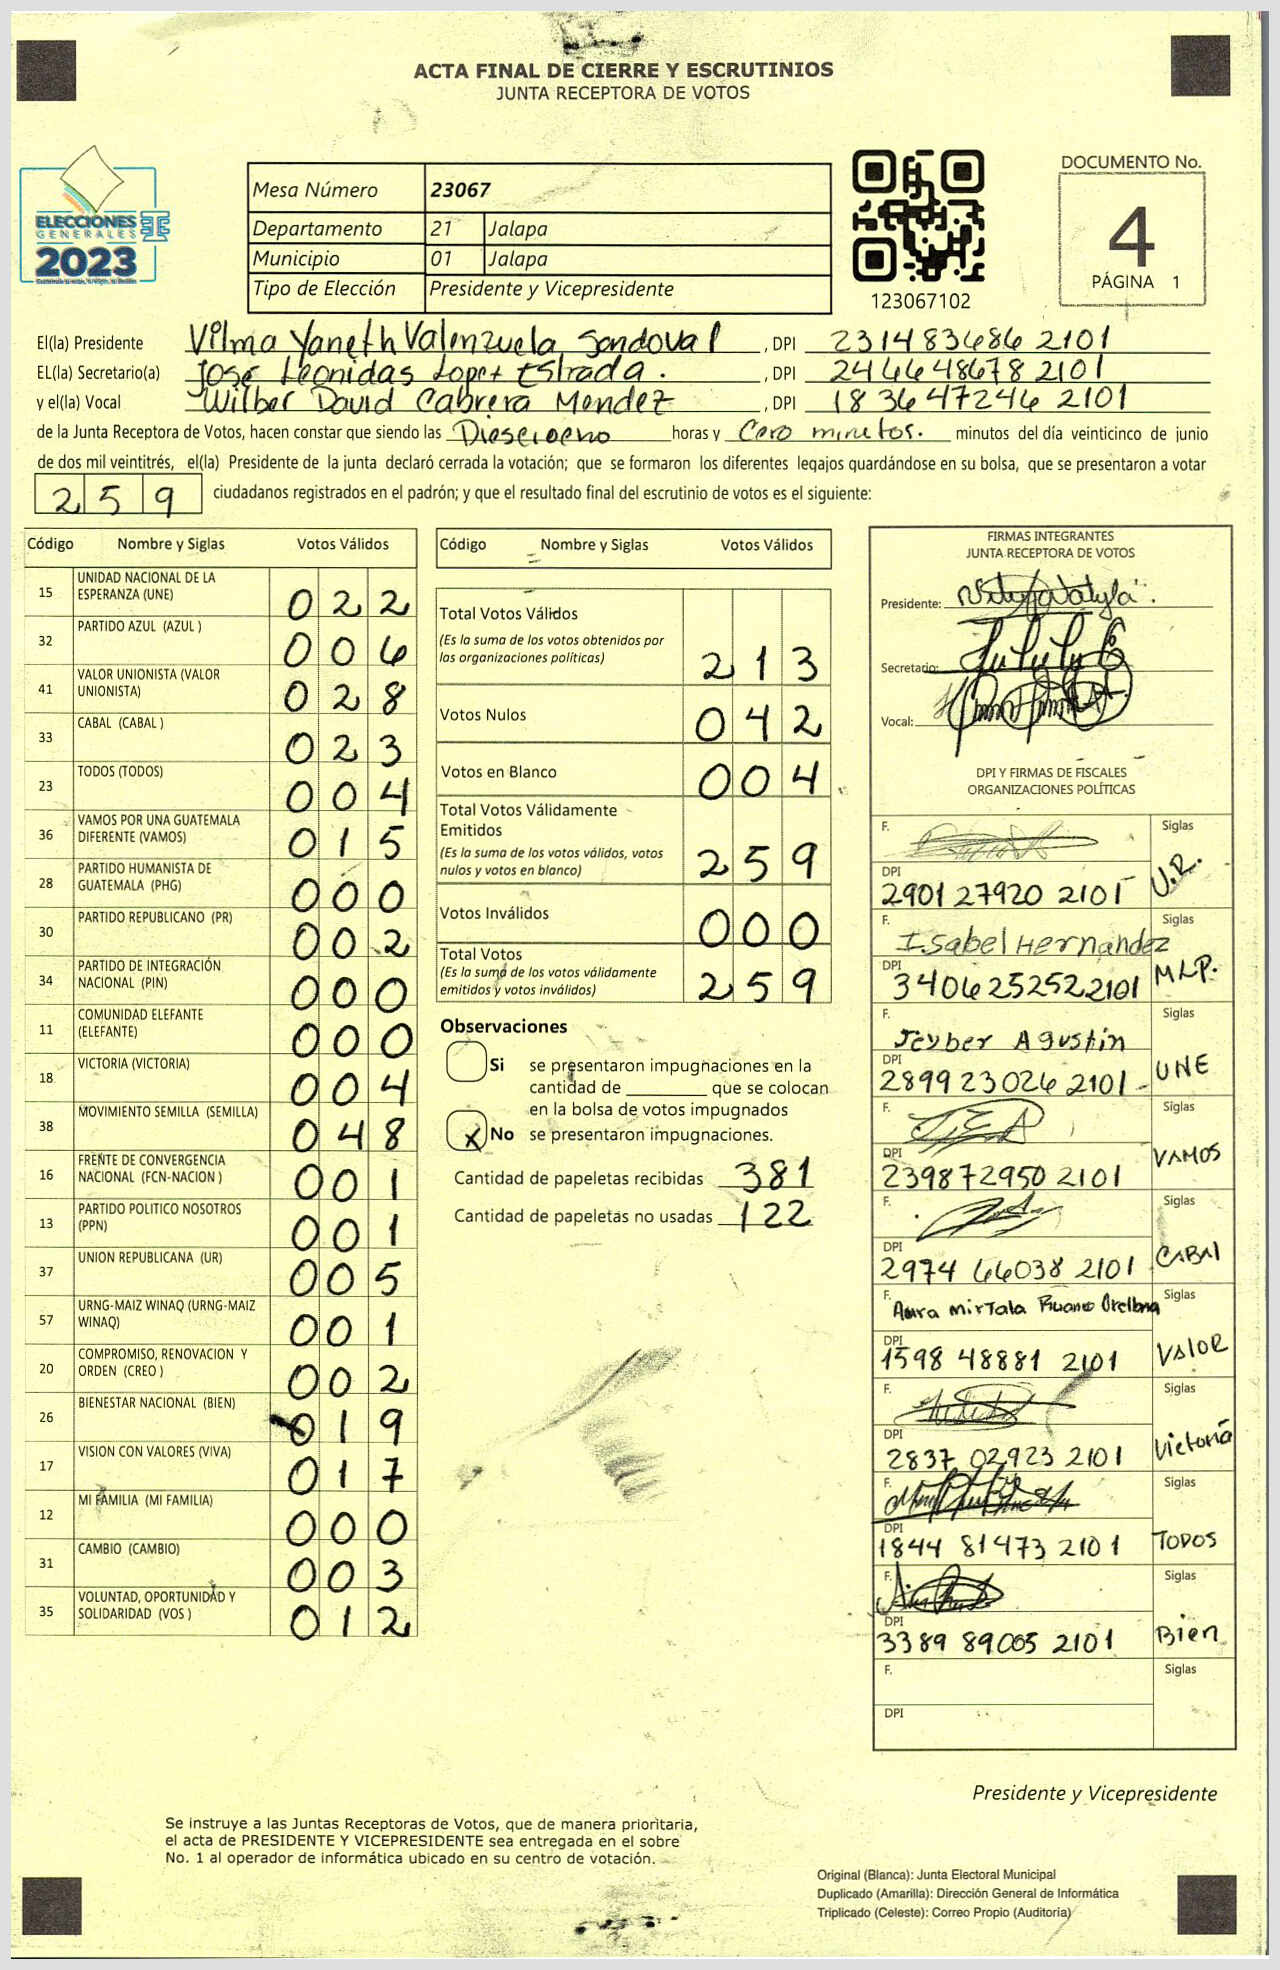 ACTA FINAL DE CIERRE Y ESCRUTINIOS
JUNTA RECEPTORA DE VOTOS
ELECCIONES
GENERALES
2023
Mesa Número 23067
Departamento 21 Jalapa
Municipio 01 Jalapa
Tipo de Elección Presidente y Vicepresidente
123067102
DOCUMENTO No.
4
PÁGINA 1
El(la) Presidente Vilma Yaneth Valenzuela Sandoval , DPI 231483686 2101
EL(la) Secretario(a) José Leonidas Lopez Estrada. , DPI 244648678 2101
y el(la) Vocal Wilber David Cabrera Mendez , DPI 183647246 2101
de la Junta Receptora de Votos, hacen constar que siendo las Diesciocno horas y Cero minutos. minutos del día veinticinco de junio
de dos mil veintitrés, el(la) Presidente de la junta declaró cerrada la votación; que se formaron los diferentes legajos quardándose en su bolsa, que se presentaron a votar
259 ciudadanos registrados en el padrón; y que el resultado final del escrutinio de votos es el siguiente:
Código Nombre y Siglas Votos Válidos
15 UNIDAD NACIONAL DE LA ESPERANZA (UNE) 022
32 PARTIDO AZUL (AZUL ) 006
41 VALOR UNIONISTA (VALOR UNIONISTA) 028
33 CABAL (CABAL ) 023
23 TODOS (TODOS) 004
36 VAMOS POR UNA GUATEMALA DIFERENTE (VAMOS) 015
28 PARTIDO HUMANISTA DE GUATEMALA (PHG) 000
30 PARTIDO REPUBLICANO (PR) 002
34 PARTIDO DE INTEGRACIÓN NACIONAL (PIN) 000
11 COMUNIDAD ELEFANTE (ELEFANTE) 000
18 VICTORIA (VICTORIA) 004
38 MOVIMIENTO SEMILLA (SEMILLA) 048
16 FRENTE DE CONVERGENCIA NACIONAL (FCN-NACION ) 001
13 PARTIDO POLITICO NOSOTROS (PPN) 001
37 UNION REPUBLICANA (UR) 005
57 URNG-MAIZ WINAQ (URNG-MAIZ WINAQ) 001
20 COMPROMISO, RENOVACION Y ORDEN (CREO ) 002
26 BIENESTAR NACIONAL (BIEN) 019
17 VISION CON VALORES (VIVA) 017
12 MI FAMILIA (MI FAMILIA) 000
31 CAMBIO (CAMBIO) 003
35 VOLUNTAD, OPORTUNIDAD Y SOLIDARIDAD (VOS ) 012
Código Nombre y Siglas Votos Válidos
Total Votos Válidos
(Es la suma de los votos obtenidos por
las organizaciones políticas) 213
Votos Nulos 042
Votos en Blanco 004
Total Votos Válidamente
Emitidos
(Es la suma de los votos válidos, votos
nulos y votos en blanco) 259
Votos Inválidos 000
Total Votos
(Es la suma de los votos válidamente
emitidos y votos inválidos) 259
Observaciones
Si se presentaron impugnaciones en la
cantidad de ________ que se colocan
en la bolsa de votos impugnados
X No se presentaron impugnaciones.
Cantidad de papeletas recibidas 381
Cantidad de papeletas no usadas 122
FIRMAS INTEGRANTES
JUNTA RECEPTORA DE VOTOS
Presidente:
Secretario:
Vocal:
DPI Y FIRMAS DE FISCALES
ORGANIZACIONES POLÍTICAS
F. Siglas
DPI
2901 27920 2101 U.R.
F. Isabel Hernandez Siglas
DPI
3406 25252 2101 MLP.
F. Jeyber Agustin Siglas
DPI
2899 23026 2101 UNE
F. Siglas
DPI
2398 72950 2101 VAMOS
F. Siglas
DPI
2974 66038 2101 CABAL
F. Aura Mirtala Orellana Siglas
DPI
1598 48881 2101 VALOR
F. Siglas
DPI
2837 02923 2101 Victoria
F. Siglas
DPI
1844 81473 2101 TODOS
F. Siglas
DPI
3389 89005 2101 Bien
F. Siglas
DPI
Presidente y Vicepresidente
Se instruye a las Juntas Receptoras de Votos, que de manera prioritaria,
el acta de PRESIDENTE Y VICEPRESIDENTE sea entregada en el sobre
No. 1 al operador de informática ubicado en su centro de votación.
Original (Blanca): Junta Electoral Municipal
Duplicado (Amarilla): Dirección General de Informática
Triplicado (Celeste): Correo Propio (Auditoría)